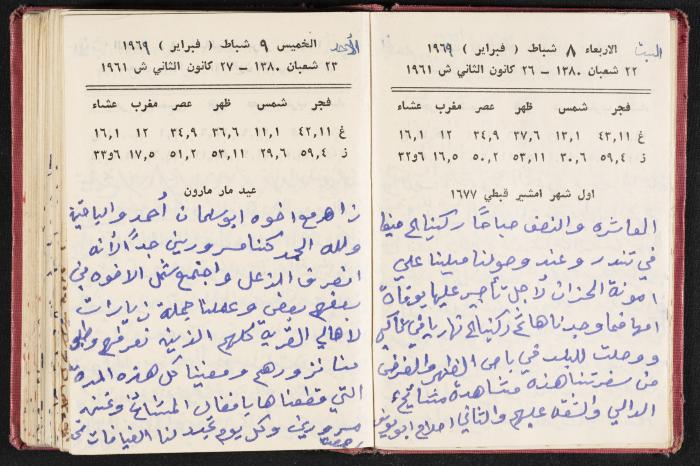 السبت
الاربعاء ٨ شباط ( فبراير ) ١٩٦٩
٢٢ شعبان ١٣٨٠ – ٢٦ كانون الثاني ش ١٩٦١
فجر شمس ظهر عصر مغرب عشاء
غ ٤٣,١١ ١٣,١ ٣٧,٦ ٣٤,٩ ١٢ ١٦,١
ز ٥٩,٤ ٣٠,٦ ٥٣,١١ ٥٠,٢ ١٦,٥ ٣٢و٦
اول شهر امشير قبطي ١٦٧٧
العاشره والنصف صباحًا ركبنا
في تندر وعند وصولنا ميلنا علي
امونة الحزان لأجل تأجير عليها بوفاة
امها فما وجدناها
ووصلت للبلد في باص الظهر والغرض
من سفرتنا هذه مشاهدة مشايخ
الدالي والشفه عليهم والثاني اصلاح ابو
الأحد
الخميس ٩ شباط ( فبراير ) ١٩٦٩
٢٣ شعبان ١٣٨٠ – ٢٧ كانون الثاني ش ١٩٦١
فجر شمس ظهر عصر مغرب عشاء
غ ٤٢,١١ ١١,١ ٣٦,٦ ٣٤,٩ ١٢ ١٦,١
ز ٥٩,٤ ٢٩,٦ ٥٣,١١ ٥١,٢ ١٧,٥ ٣٣و٦
عيد مار مارون
زاهر مع اخوه ابو سلمان أحمد والباقية
ولله الحمد كنا مسرورين جدًا لأنه
انصرف الزعل واجتمع شمل الاخوه في
بعضهم بعض وعملنا جملة زيارات
لاهالي القرية كلهم الذين نعرفهم
منا نزورهم ومضينا كل هذه المدة
التي قطعناها بافضال المشايخ ونحنه
مسرورين وكل يوم تجدد لنا الضيافات